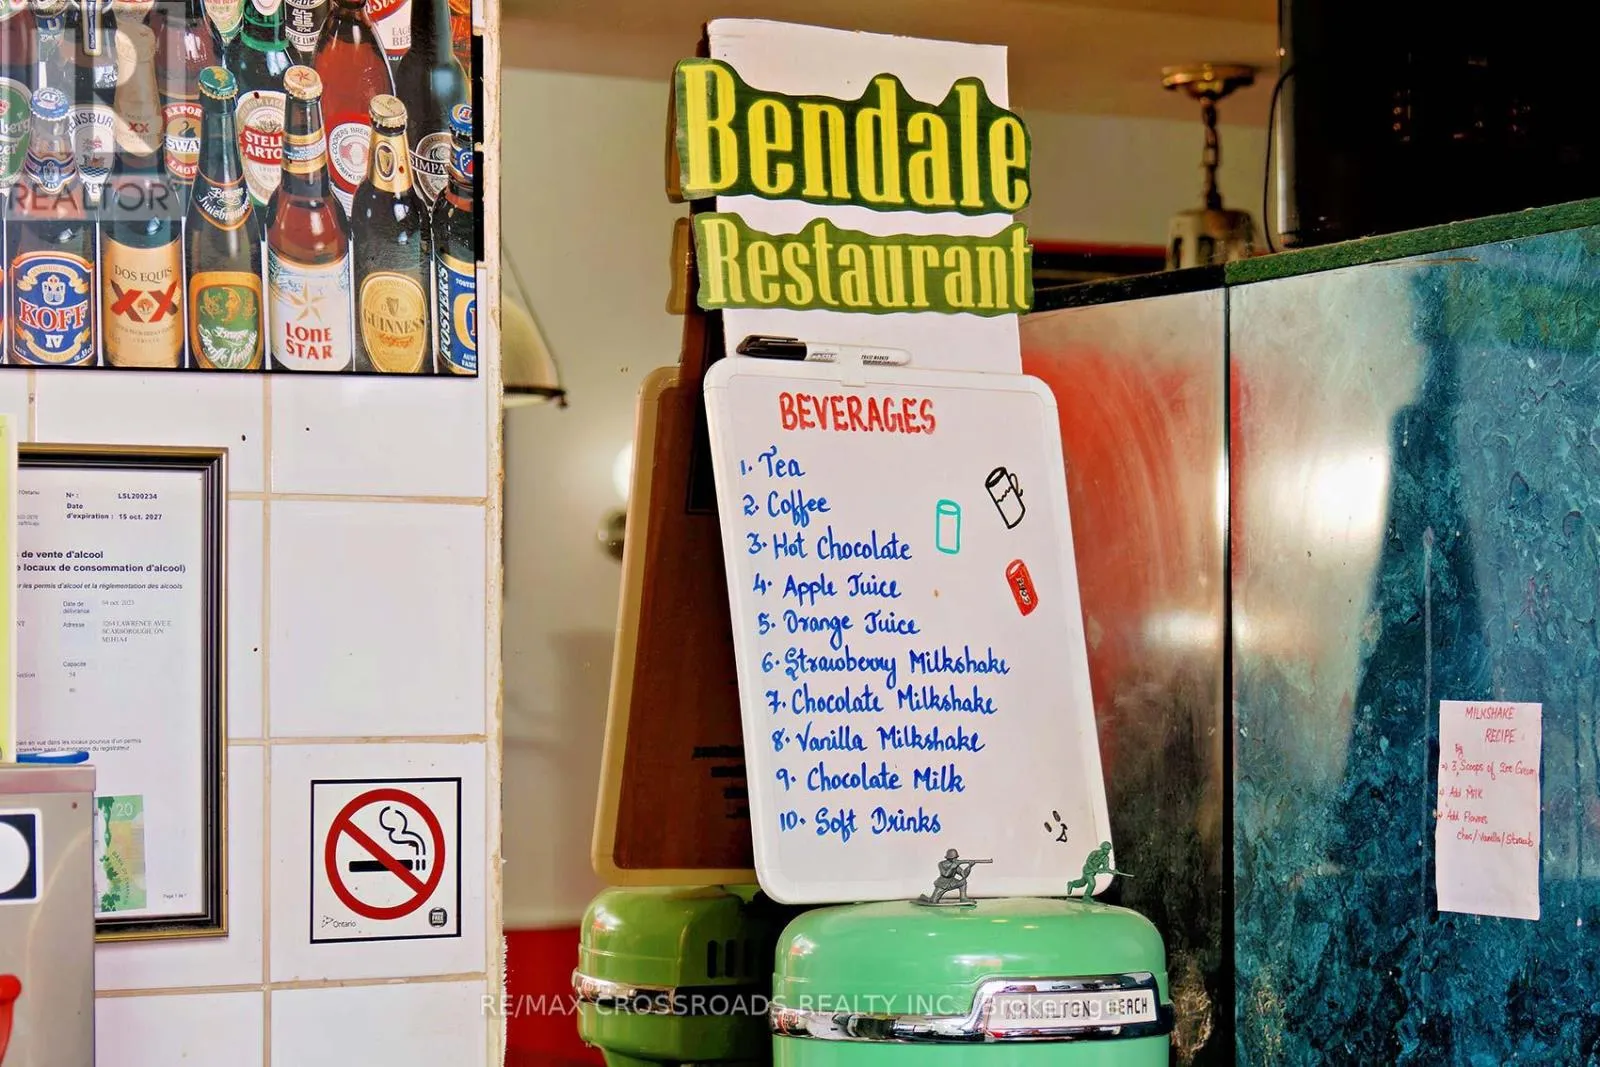 REALTOR®
EXPOR
SWA
LAGE
STELL
ARTO
KOFF
IV
DOS EQUIS
XX
LONE
STAR
GUINNESS
FOSTER'S
Bendale
Restaurant
BEVERAGES
1. Tea
2. Coffee
3. Hot Chocolate
4. Apple Juice
5. Orange Juice
6. Strawberry Milkshake
7. Chocolate Milkshake
8. Vanilla Milkshake
9. Chocolate Milk
10. Soft Drinks
Nº : LSL200234
Date
d'expiration : 15 oct. 2027
de vente d'alcool
locaux de consommation d'alcool)
les permis d'alcool et la réglementation des alcools
Date de
délivrance
04 oct. 2023
Adresse
3264 LAWRENCE AVE E
SCARBOROUGH, ON
M1H1A4
Capacité
54
20
Page 1 de 1
Ontario
MILKSHAKE
RECIPE
3 Scoops of Ice Cream
Add Milk
Add Flavors
choc/Vanilla/Strawb
HAMILTON BEACH
RE/MAX CROSSROADS REALTY INC., Brokerage